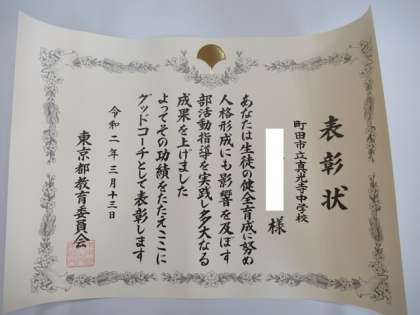 表彰状
町田市立真光寺中学校
様
あなたは生徒の健全育成に努め
人格形成にも影響を及ぼす
部活動指導を実践し多大なる
成果を上げました
よってその功績をたたえここに
グッドコーチとして表彰します
令和二年三月十三日
東京都教育委員会